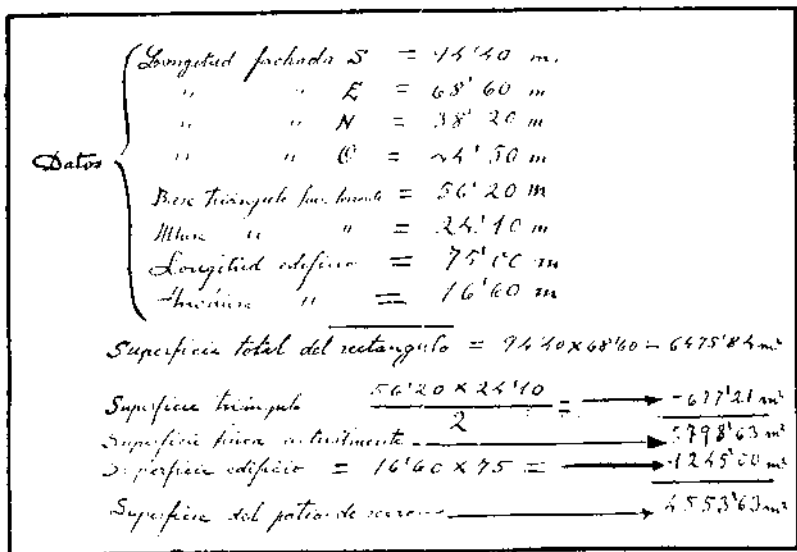 Datos
Longitud fachada S = 94'40 m.
" " E = 68'60 m
" " N = 38'20 m
" " O = 44'50 m
Base triángulo = 56'20 m
Altura " " = 24'10 m
Longitud edificio = 75'00 m
Anchura " = 16'60 m
Superficie total del rectangulo = 94'40 x 68'60 = 6475'84 m²
Superficie triángulo 56'20 x 24'10 / 2 = -677'21 m²
Superficie finca actualmente 5798'63 m²
Superficie edificio = 16'60 x 75 = -1245'00 m²
Superficie del patio de recreo 4553'63 m²